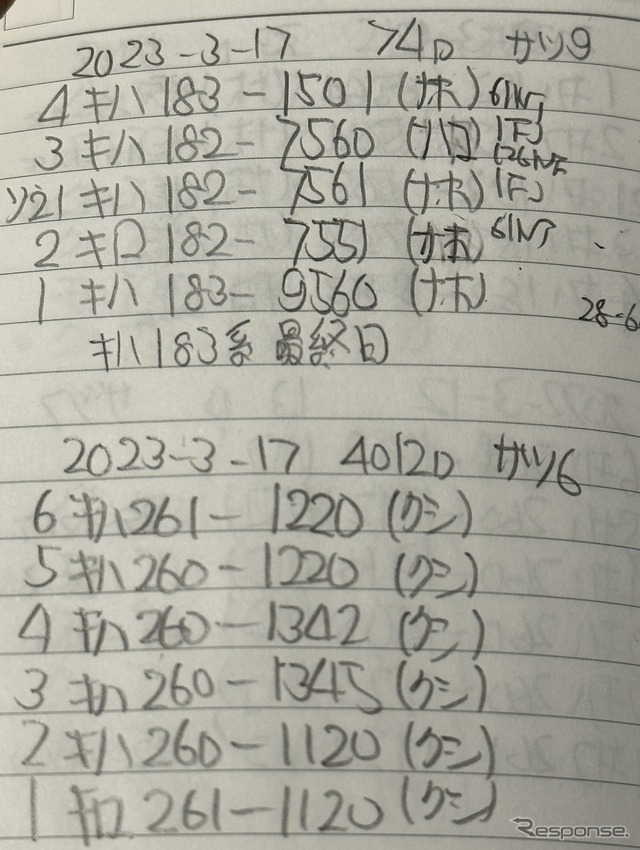 2023-3-17 74D サツ9
4 キハ183-1501 (ナホ) 61N
3 キハ182-7560 (ハコ) 1F
ソ21 キハ182-7561 (ナホ) 1F
2 キロ182-7551 (ナホ) 61N
1 キハ183-9560 (ナホ)
28-6
キハ183系 最終日
2023-3-17 4012D サツ6
6 キハ261-1220 (クシ)
5 キハ260-1220 (クシ)
4 キハ260-1342 (クシ)
3 キハ260-1345 (クシ)
2 キハ260-1120 (クシ)
1 キロ261-1120 (クシ)
Response.